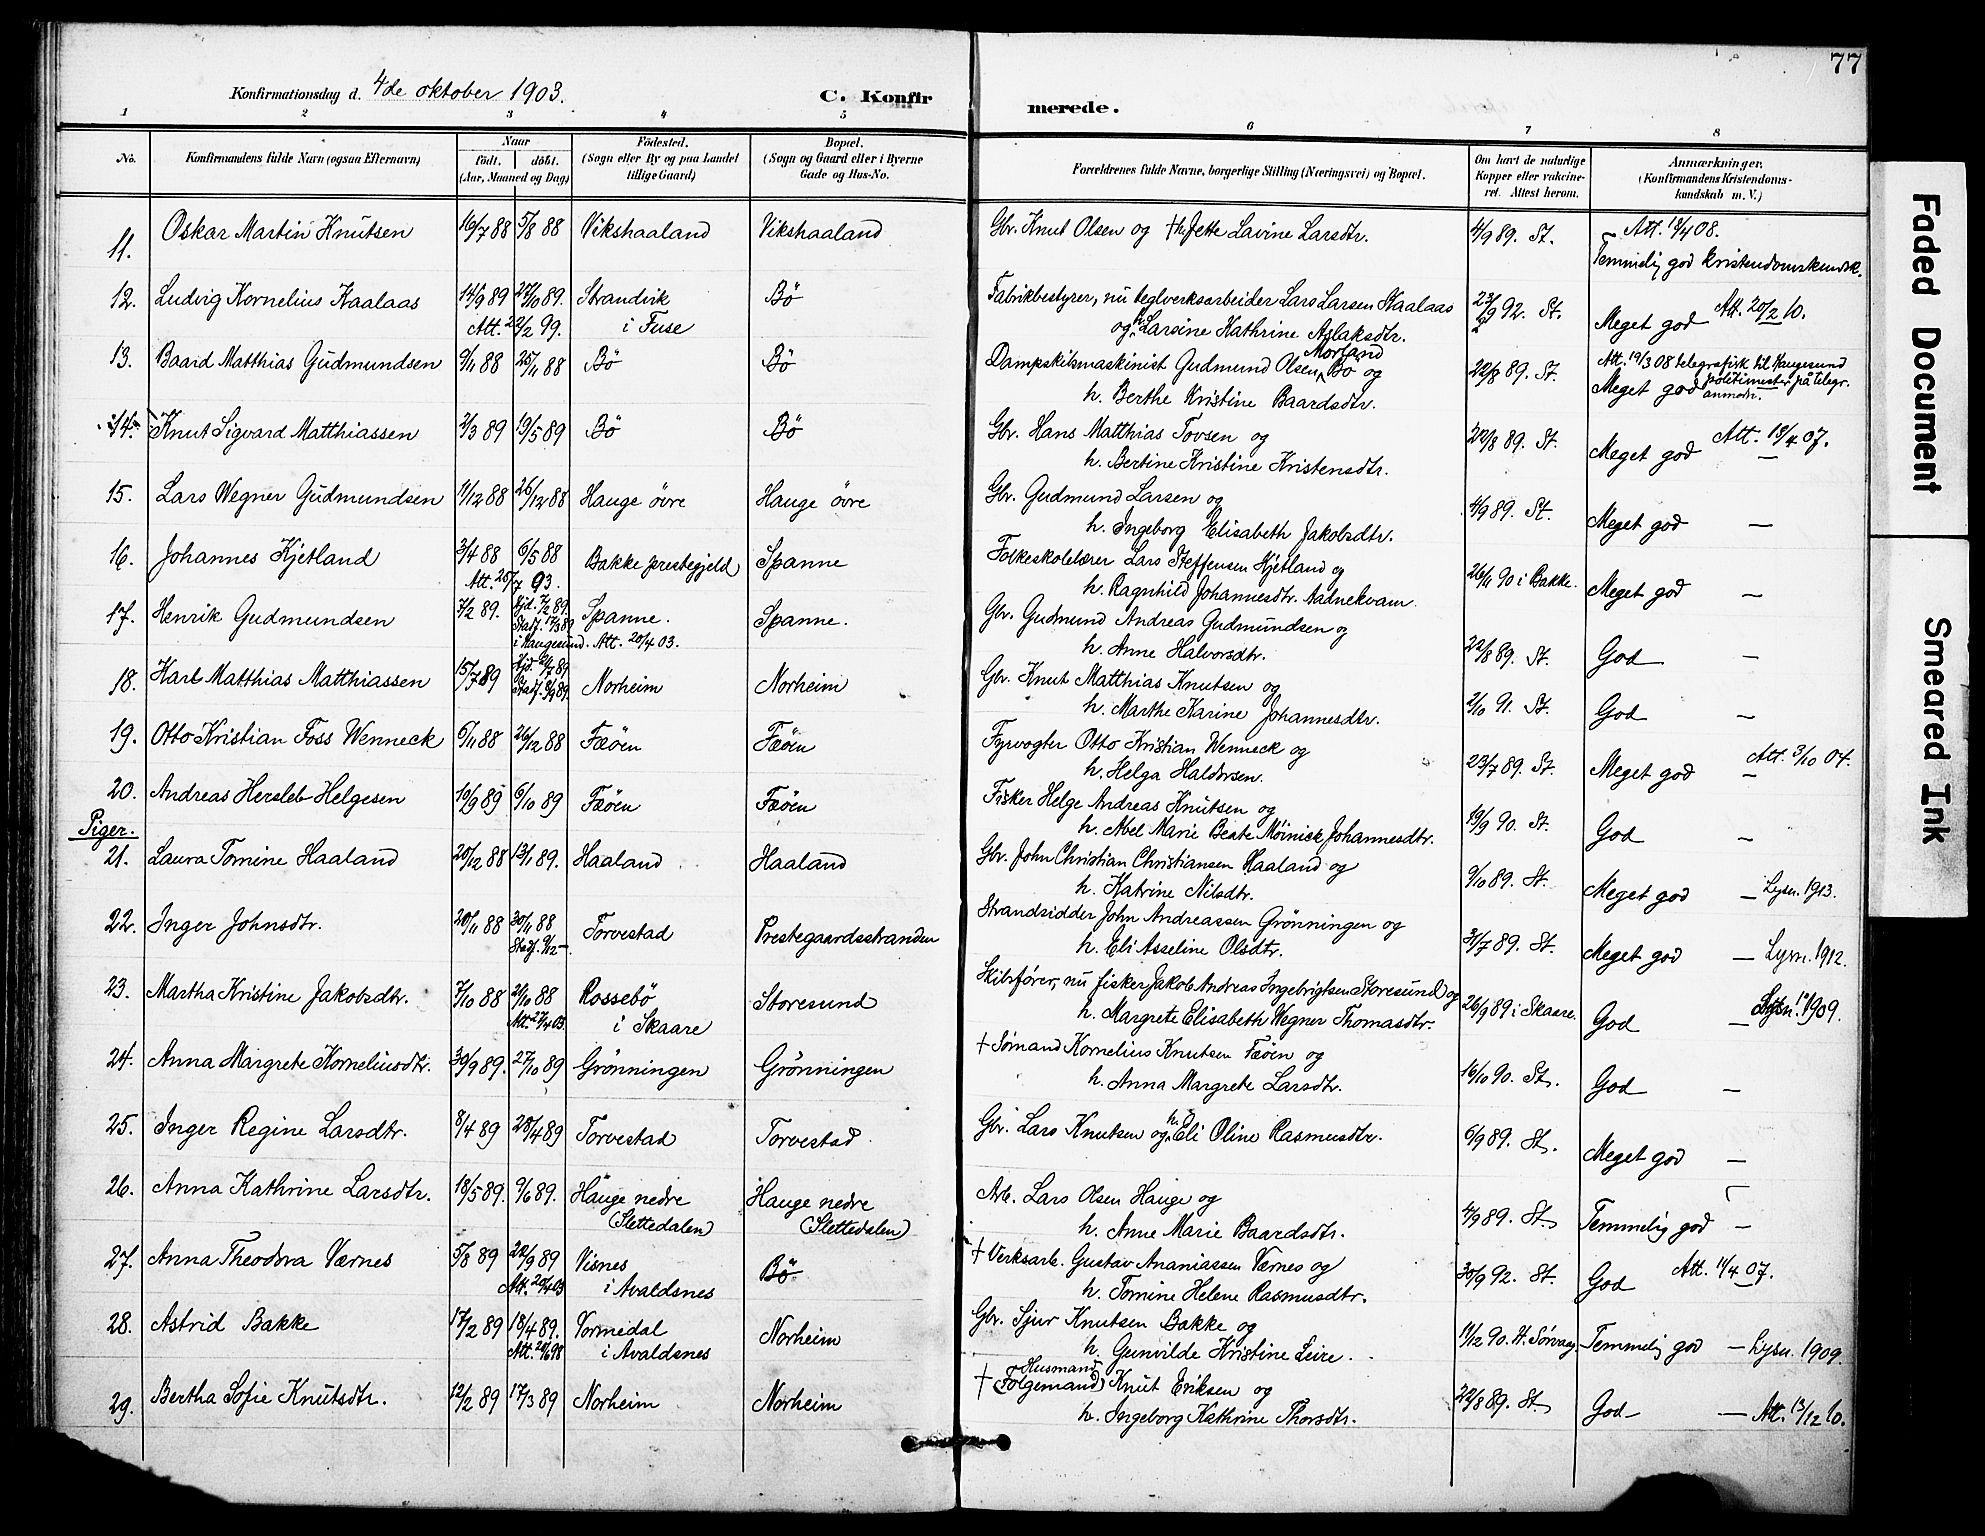 77
Konfirmationsdag d. 4de oktober 1903.
C. Konfirmerede.
1 2 3 4 5 6 7 8
No. Konfirmandens fulde Navn (ogsaa Efternavn) Naar født. døbt. (Aar, Maaned og Dag) Födested. (Sogn eller By og paa Landet tillige Gaard) Bopæl. (Sogn og Gaard eller i Byerne Gade og Hus-No. Forældrenes fulde Navne, borgerlige Stilling (Næringsvei) og Bopæl. Om havt de naturlige Kopper eller vakcineret. Attest herom. Anmærkninger. (Konfirmandens Kristendomskundskab m. V.)
11. Oskar Martin Knutsen 16/7 88 5/8 88 Vikshaaland Vikshaaland Gbr. Knut Olsen og † h. Jette Lavine Larsdtr. 4/9 89. St. Att. 18/4 08.
Temmelig god kristendomskundsk.
12. Ludvig Kornelius Kaalaas 14/9 89 27/10 89. Strandvik Bö Fabrikbestyrer, nu teglverksarbeider Lars Larsen Kaalaas 23/9 92. St. Meget god Att. 20/2 10.
Att. 2/2 99. i Fuse og h. Larsine Kathrine Aslaksdtr.
13. Baard Matthias Gudmundsen 9/11 88 25/11 88 Bö Bö Dampskibsmaskinist Gudmund Olsen Morland Bö og 22/8 89. St. Att. 19/3 08 telegrafisk til Haugesund
h. Berthe Kristine Baardsdtr. Meget god politimester på telegr. anmodn.
14. Knut Sigvard Matthiassen 2/3 89 19/5 89 Bö Bö Gbr. Hans Matthias Tovsen og 22/8 89. St. Meget god Att. 18/4 07.
h. Bertine Kristine Kristensdtr.
15. Lars Wegner Gudmundsen 1/12 88 26/12 88 Hauge övre Hauge övre Gbr. Gudmund Larsen og 4/9 89. St. Meget god —
h. Ingeborg Elisabeth Jakobsdtr.
16. Johannes Kjetland 3/4 88 6/5 88 Bakke prestegjeld Spanne Folkeskolelærer Lars Steffensen Kjetland og 26/11 90 i Bakke. Meget god —
Att. 25/7 93. h. Ragnhild Johannesdtr. Aadnekvam.
17. Henrik Gudmundsen 7/2 89. Hjd. 7/2 89. Stadf. 17/3 89 Spanne. Spanne. Gbr. Gudmund Andreas Gudmundsen og 22/8 89. St. God —
i Haugesund. Att. 20/4 03. h. Anne Halvorsdtr.
18. Karl Matthias Matthiassen 15/7 89 Hjd. 21/7 89 Stadf. 8/9 89. Norheim Norheim Gbr. Knut Matthias Knutsen og 2/10 91. St. God —
h. Marthe Karine Johannesdtr.
19. Otto Kristian Foss Wenneck 6/11 88 26/12 88 Fæöen Fæöen Fyrvogter Otto Kristian Wenneck og 23/7 89. St. Meget god — Att. 3/10 04.
h. Helga Haldorsen.
20. Andreas Hersleb Helgesen 10/9 89 6/10 89 Fæöen Fæöen Fisker Helge Andreas Knutsen og 19/9 90. St. God —
h. Abel Marie Beate Möinick Johannesdtr.
Piger.
21. Laura Tomine Haaland 20/12 88 13/1 89. Haaland Haaland Gbr. John Christian Christiansen Haaland og 9/10 89. St. Meget god — Lysn. 1913.
h. Katrine Nilsdtr.
22. Inger Johnsdtr. 20/11 88 30/11 88 Torvestad Prestegaardsstranden Strandsidder John Andreassen Grönningen og 31/7 89. St. Meget god — Lysn. 1912.
Stadf. 9/12 — h. Eli Asseline Olsdtr.
23. Martha Kristine Jakobsdtr. 7/10 88 21/10 88 Rossebö Storesund Skibsförer, nu fisker Jakob Andreas Ingebrigtsen Storesund og 26/9 89 i Skaare. God — Lysn. 1909.
Att. 27/4 03. i Skaare h. Margrete Elisabeth Wegner Thomasdtr.
24. Anna Margrete Korneliusdtr. 30/9 89. 27/10 89 Grönningen Grönningen † Sömand Kornelius Knutsen Fæöen og 16/10 90. St. God —
h. Anna Margrete Larsdtr.
25. Inger Regine Larsdtr. 8/4 89 28/4 89 Torvestad Torvestad Gbr. Lars Knutsen og h. Eli Oline Rasmusdtr. 6/9 89. St. Meget god —
26. Anna Kathrine Larsdtr. 18/5 89. 9/6 89. Hauge nedre Hauge nedre Arb. Lars Olsen Hauge og 4/9 89. St. Temmelig god —
(Slettedalen) (Slettedalen) h. Anne Marie Baardsdtr.
27. Anna Theodora Værnes 5/8 89 22/9 89 Visnes Bö † Verksarb. Gustav Ananiassen Værnes og 30/9 92. St. God Att. 11/4 07.
Att. 20/4 03 i Avaldsnes h. Tomine Helene Rasmusdtr.
28. Astrid Bakke 17/2 89 18/4 89. Vormedal Norheim Gbr. Sjur Knutsen Bakke og 11/12 90. St. Sörvaag Temmelig god — Lysn. 1909.
Att. 20/6 98 i Avaldsnes h. Gunvilde Kristine Leire.
29. Bertha Sofie Knutsdtr. 12/2 89 17/3 89 Norheim Norheim † Husmand (Folgemand) Knut Eriksen og 22/8 89. St. God — Att. 13/12 10.
h. Ingeborg Kathrine Thorsdtr.
Faded Document
Smeared Ink